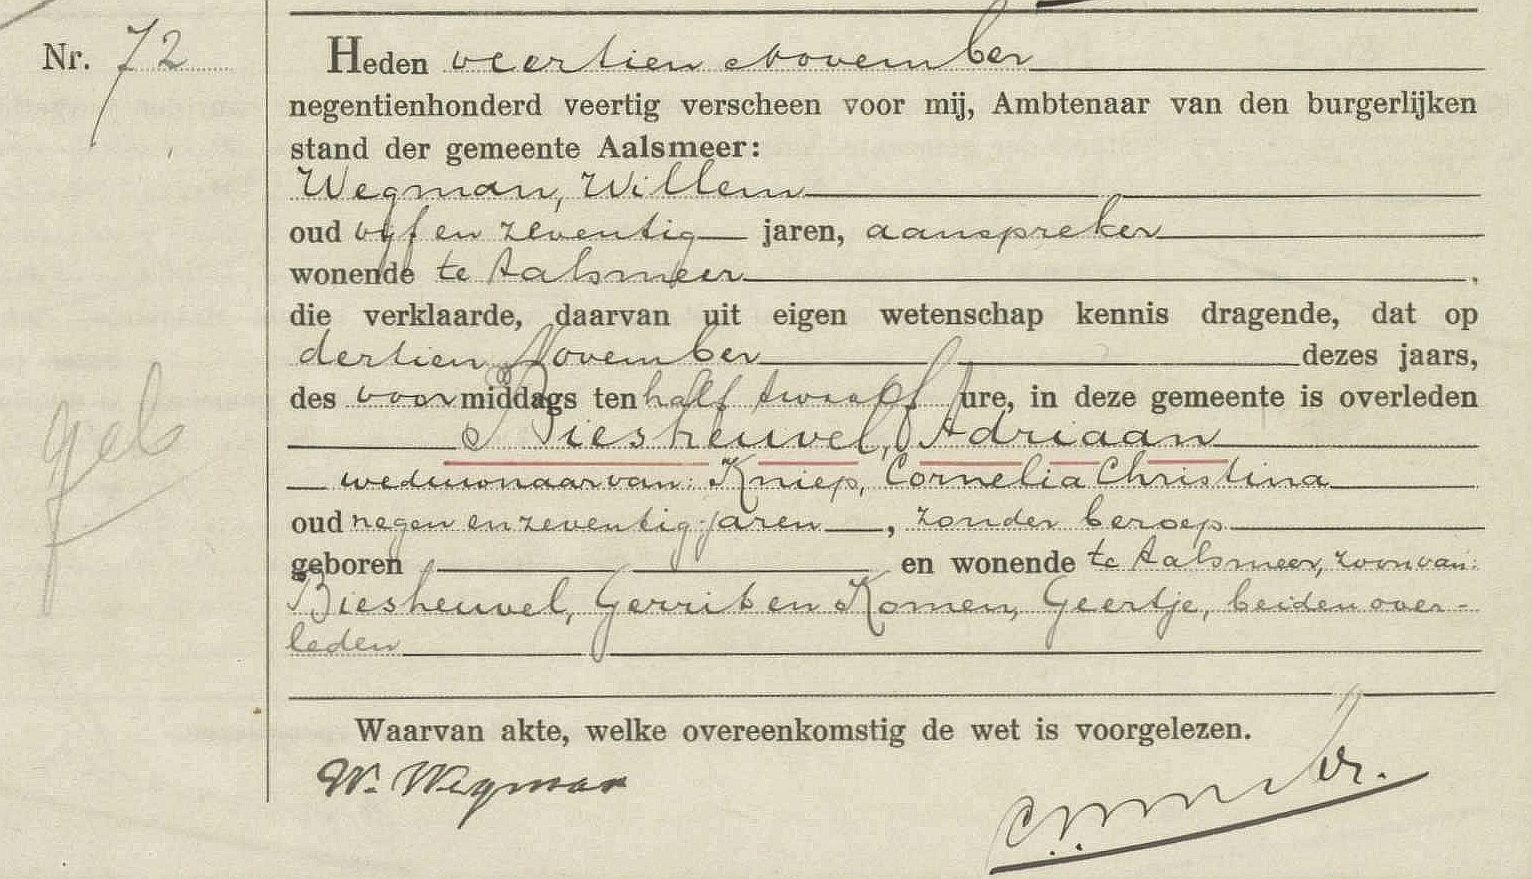 Nr. 72
Heden veertien November
negentienhonderd veertig verscheen voor mij, Ambtenaar van den burgerlijken
stand der gemeente Aalsmeer:
Wegman, Willem
oud vijf en zeventig jaren, aanspreker
wonende te Aalsmeer.
die verklaarde, daarvan uit eigen wetenschap kennis dragende, dat op
dertien November dezes jaars,
des voormiddags ten half twaalf ure, in deze gemeente is overleden
Biesheuvel, Adriaan
weduwnaar van: Kniep, Cornelia Christina
oud negen en zeventig jaren, zonder beroep
geboren en wonende te Aalsmeer, zoon van:
Biesheuvel, Gerrit en Komen, Geertje, beiden over-
leden
Waarvan akte, welke overeenkomstig de wet is voorgelezen.
W. Wegman